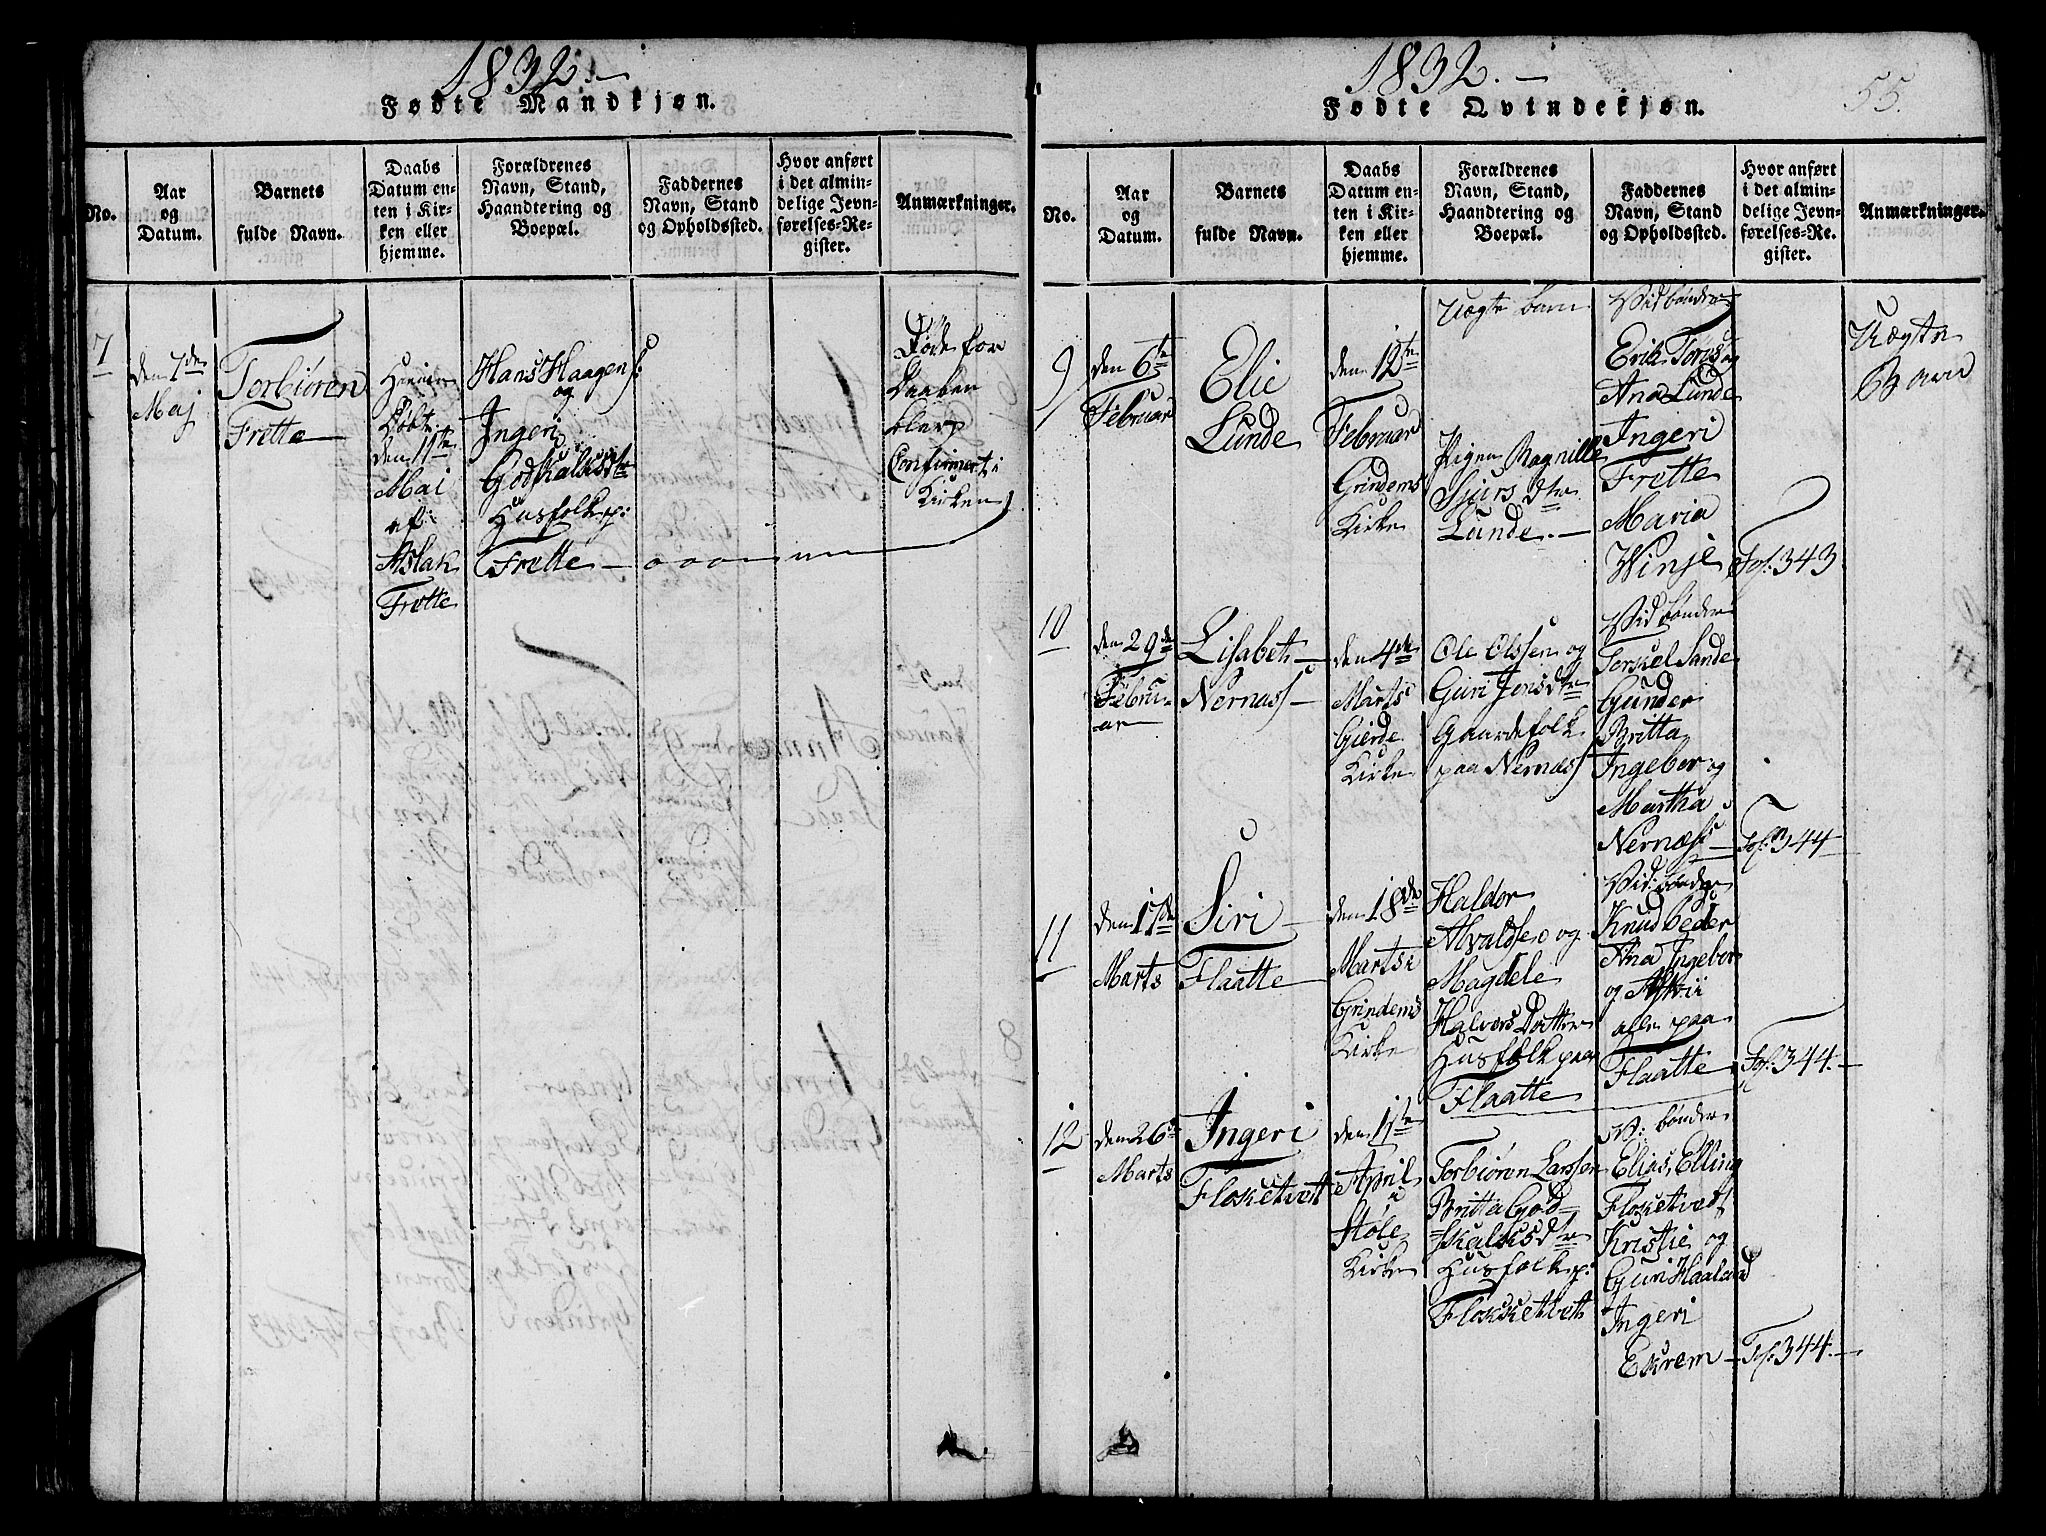 1832.
Fødte Mandkjøn.
No.
Aar
og
Datum.
Barnets
fulde Navn.
Daabs
Datum en-
ten i Kir-
ken eller
hjemme.
Forældrenes
Navn, Stand,
Haandtering og
Boepæl.
Faddernes
Navn, Stand
og Opholdssted.
Hvor anført
i det almin-
delige Jevn-
førelses-Re-
gister.
Anmærkninger.
7
den 7de
Maj
Torbiören
Frette
Døbt
den 11te
Mai
af
Aslak
Frette
Hans Haagens:
og
Ingeri
Godskalksdtr
Husfolk p:
Frette
Døde for
Daaben
blev
Confirmert i
Kirken
1832.
55.
Fødte Qvindekjøn.
No.
Aar
og
Datum.
Barnets
fulde Navn.
Daabs
Datum en-
ten i Kir-
ken eller
hjemme.
Forældrenes
Navn, Stand,
Haandtering og
Boepæl.
Faddernes
Navn, Stand
og Opholdssted.
Hvor anført
i det almin-
delige Jevn-
førelses-Re-
gister.
Anmærkninger.
9
den 6te
Februar
Elie
Lunde
den 12te
Februar
Grindems
Kirke
Uægte barn
Pigen Ragnille
Sjurs dtr
Lunde.
Vidbönder
Erik Toris og
Ana Lunde
Ingeri
Frette
Maria
Winje
Fol: 343
Uægte
Barn
10
den 29de
Febru-
ar
Lisabeth
Nernæss
den 4de
Marts i
Gierde
Kirke
Ole Olssen og
Guri Jonsdtr
Gaardefolk
paa Nernæss
Vidbönder
Torkel Sande
Gunder
Britta
Ingebor og
Martha
Nernæss
Fol: 344
11
den 17de
Marts
Siri
Flaatte
den 18de
Marts i
Grindems
Kirke
Haldor
Alvaldsen og
Magdele
Halvors Dotter
Husfolk paa
Flaatte
Vid: bönder
Knud Peder
Ana Ingebor
og
alle paa
Flaatte
Fol: 344.
12
den 26de
Marts
Ingeri
Floketvett
den 1ste
April
i
Støle
Kirke
Torbiören Larssen
Britta God-
skalksdtr
Husfolk p:
Flokketveth
V: bönder
Elias, Elling
Floketvedt
Kristie og
Guri Haaland
Ingeri
Ekrem
Fol: 344.